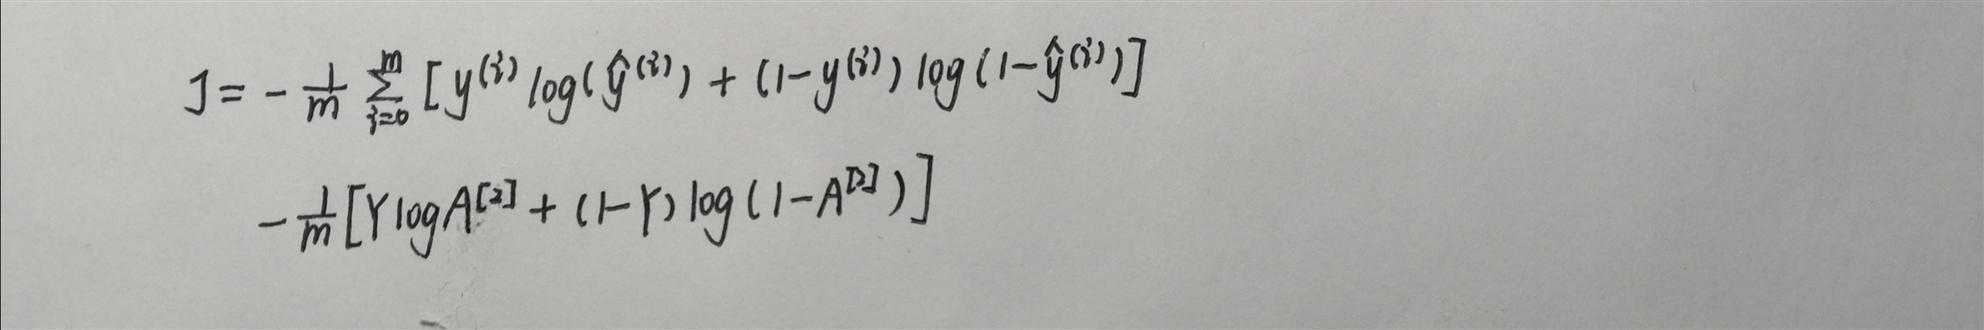 J = - 1/m ∑_{i=0}^{m} [y^{(i)} log(ŷ^{(i)}) + (1-y^{(i)}) log(1-ŷ^{(i)})]
- 1/m [Y log A^{[2]} + (1-Y) log(1-A^{[2]})]